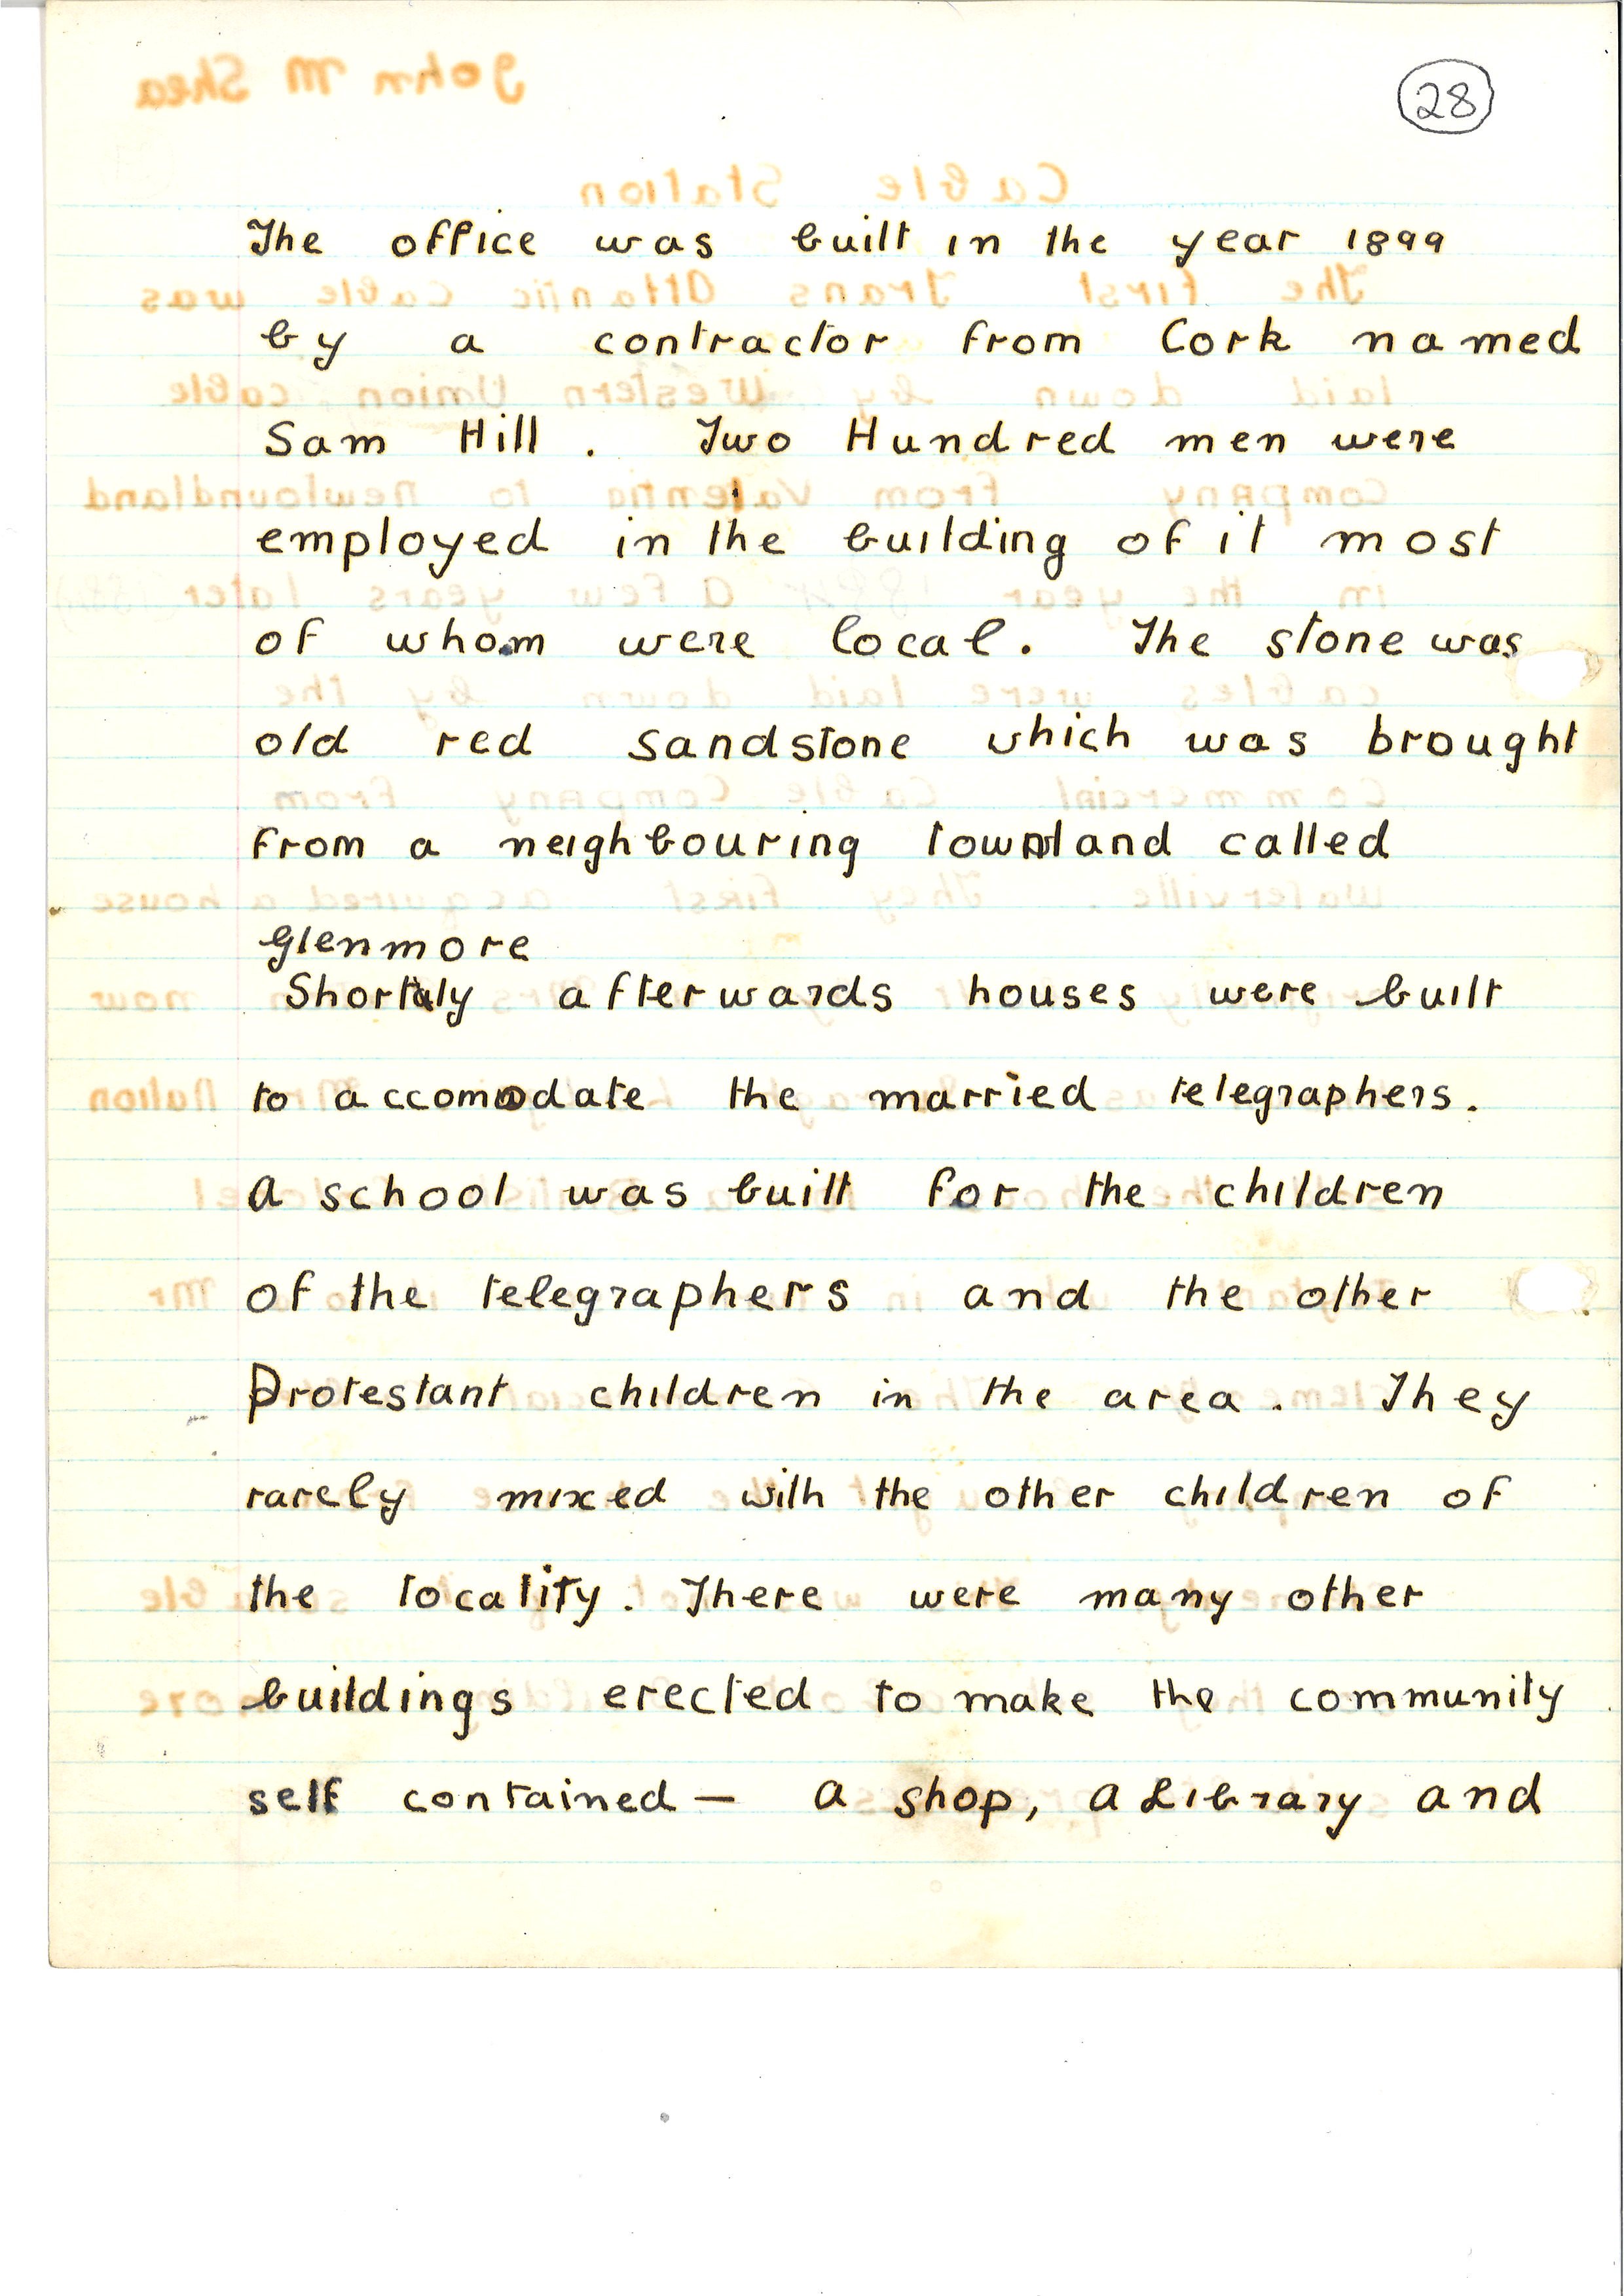 28
The office was built in the year 1899
by a contractor from Cork named
Sam Hill . Two Hundred men were
employed in the building of it most
of whom were local. The stone was
old red sandstone which was brought
from a neighbouring townland called
Glenmore
Shortly afterwards houses were built
to accomodate the married telegraphers.
A school was built for the children
of the telegraphers and the other
Protestant children in the area. They
rarely mixed with the other children of
the locality. There were many other
buildings erected to make the community
self contained — a shop, a Library and